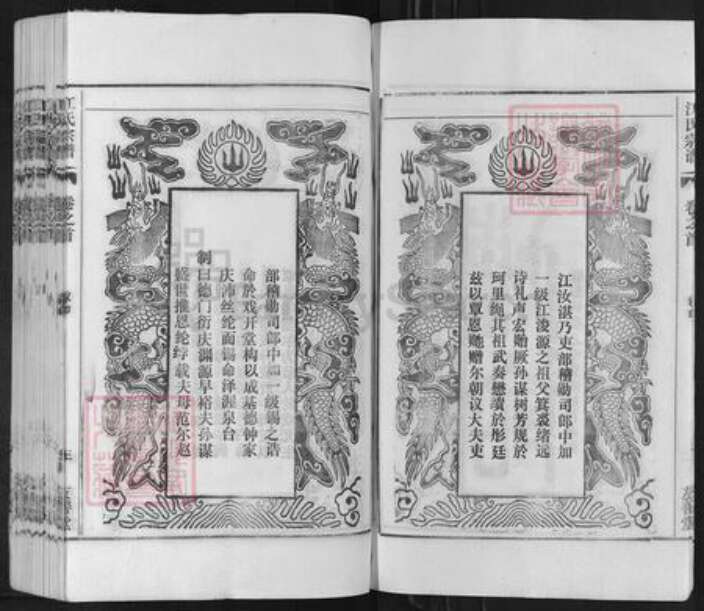 江汝湛乃吏部稽勋司郎中加
一级江浚源之祖父箕裘绪远
诗礼声宏贻厥孙谋树芳规於
珂里绳其祖武奏懋绩於彤廷
兹以覃恩貤赠尔朝议大夫吏
部稽勋司郎中加一级锡之诰
命於戏开堂构以成基德钟家
庆沛丝纶而锡命泽渥泉台
制曰德门衍庆渊源早裕夫孙谋
盛世推恩纶綍载夫母范尔赵
江氏宗谱
卷之首